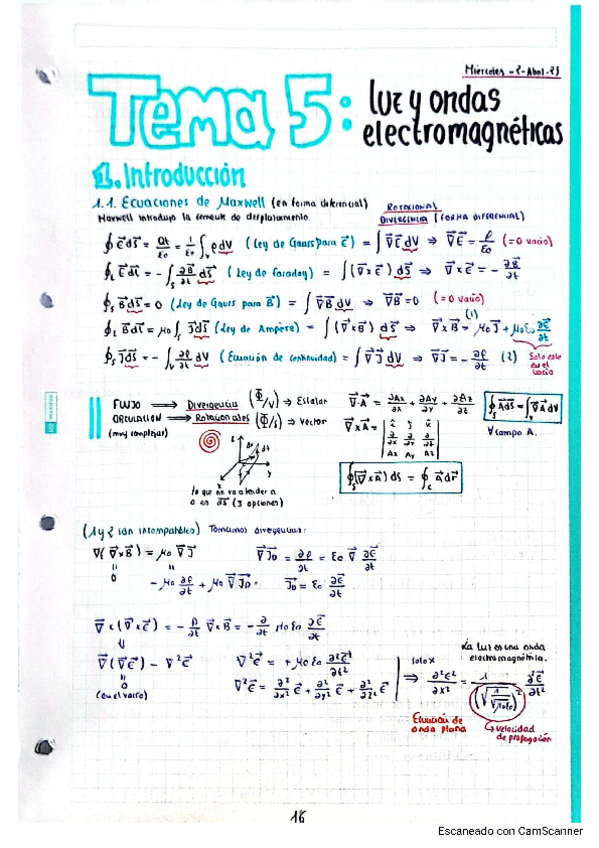 Miércoles - 2 - Abril - 25
Tema 5: luz y ondas
electromagnéticas
1. Introducción
1.1. Ecuaciones de Maxwell (en forma diferencial)
Maxwell introdujo la corriente de desplazamiento.
ROTACIONAL
DIVERGENCIA (FORMA DIFERENCIAL)
∮ E⃗ dS⃗ = Qt/ε₀ = 1/ε₀ ∫ᵥ ρ dV (Ley de Gauss para E⃗) = ∫ ∇⃗E⃗ dV ⇒ ∇⃗E⃗ = ρ/ε₀ (=0 vacío)
∮_L E⃗ dl⃗ = - ∫_S ∂B⃗/∂t dS⃗ (Ley de Faraday) = ∫ (∇⃗×E⃗) dS⃗ ⇒ ∇⃗×E⃗ = - ∂B⃗/∂t
∮_S B⃗ dS⃗ = 0 (Ley de Gauss para B⃗) = ∫ ∇⃗B⃗ dV ⇒ ∇⃗B⃗ = 0 (=0 vacío)
∮_L B⃗ dl⃗ = μ₀ ∫_S J⃗ dS⃗ (Ley de Ampère) = ∫ (∇⃗×B⃗) dS⃗ ⇒ ∇⃗×B⃗ = μ₀ J⃗ + μ₀ε₀ ∂E⃗/∂t (1)
∮_S J⃗ dS⃗ = - ∫ᵥ ∂ρ/∂t dV (Ecuación de continuidad) = ∫ ∇⃗J⃗ dV ⇒ ∇⃗J⃗ = - ∂ρ/∂t (2)
Solo este
en el
vacío
FLUJO ⟹ Divergencia (Φ/V) ⇒ Escalar
CIRCULACIÓN ⟹ Rotacionales (Φ/S) ⇒ Vector
(muy complejas)
∇⃗A⃗ = ∂Ax/∂x + ∂Ay/∂y + ∂Az/∂z
∮_S A⃗ dS⃗ = ∫ᵥ ∇⃗A⃗ dV
∀ campo A.
∇⃗×A⃗ = | x̂ ŷ ẑ |
| ∂/∂x ∂/∂y ∂/∂z |
| Ax Ay Az |
lo que
es dS⃗ (3 opciones)
∮_S (∇⃗×A⃗) dS = ∮_C A⃗ dr⃗
(1 y 2 son incompatibles) Tomamos divergencias:
∇⃗(∇⃗×B⃗) = μ₀ ∇⃗J⃗
0
- μ₀ ∂ρ/∂t + μ₀ ∇⃗J⃗_D
∇⃗J⃗_D = ∂ρ/∂t = ε₀ ∇⃗ ∂E⃗/∂t
J⃗_D = ε₀ ∂E⃗/∂t
∇⃗×(∇⃗×E⃗) = - ∂/∂t ∇⃗×B⃗ = - ∂/∂t μ₀ε₀ ∂E⃗/∂t
∇⃗(∇⃗E⃗) - ∇²E⃗
0
(en el vacío)
∇²E⃗ = + μ₀ε₀ ∂²E⃗/∂t²
∇²E⃗ = ∂²/∂x² E⃗ + ∂²/∂y² E⃗ + ∂²/∂z² E⃗
La luz es una onda
electromagnética.
solo x
⇒ ∂²E²/∂x² = 1/(√(1/√μ₀ε₀))² ∂²E⃗/∂t²
Ecuación de
onda plana
velocidad
de propagación
16
Escaneado con CamScanner